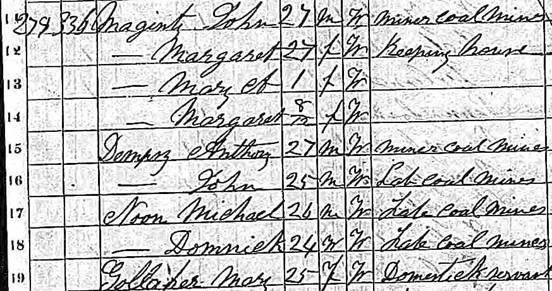 274 336 Maginty John 27 m W miner coal mines
12 — Margaret 27 f W Keeping house
13 — Mary A 1 f W
14 — Margaret 8/12 f W
15 Dempsy Anthony 27 m W miner coal mines
16 — John 25 m W Lab coal mines
17 Noon Michael 26 m W Lab coal mines
18 — Domnick 24 m W Lab coal mines
19 Gollaher Mary 25 f W Domestick servant